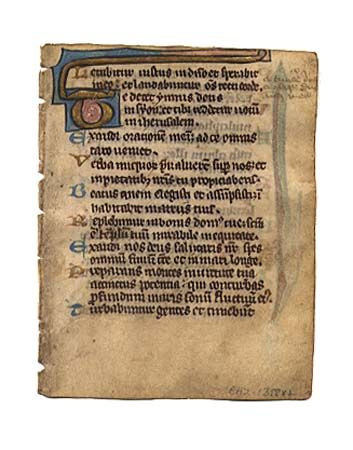 Letabitur iustus in dño et sperabit
in eo: et laudabuntur om̅s recti corde.
Te decet ymnus deus
in syon: et tibi reddetur uotum
in iherusalem.
Exaudi orationem meā: ad te omnis
caro ueniet.
Verba iniquoꝝ p̄ualuerͭ suꝑ nos: et
impietatibꝫ nr̄is tu propiciaberis.
Beatus quem elegisti et assumpsisti:
habitabit in atriis tuis.
Replebimur in bonis domꝰ tue: scm̄
ē templū tuū mirabile in equitate.
Exaudi nos deus salutaris nr̄: spes
omniū finiū terre et in mari longe.
Preparans montes in uirtute tua
accinctus potentia: qui conturbas
ꝓfundum maris sonū fluctuū eꝰ.
Turbabuntur gentes et timebūt